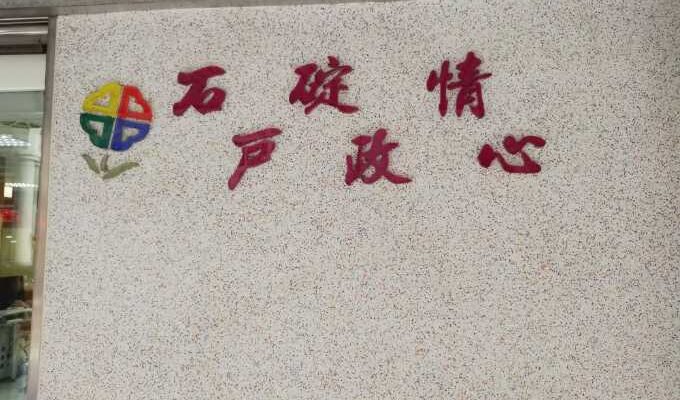 石碇情
戶政心